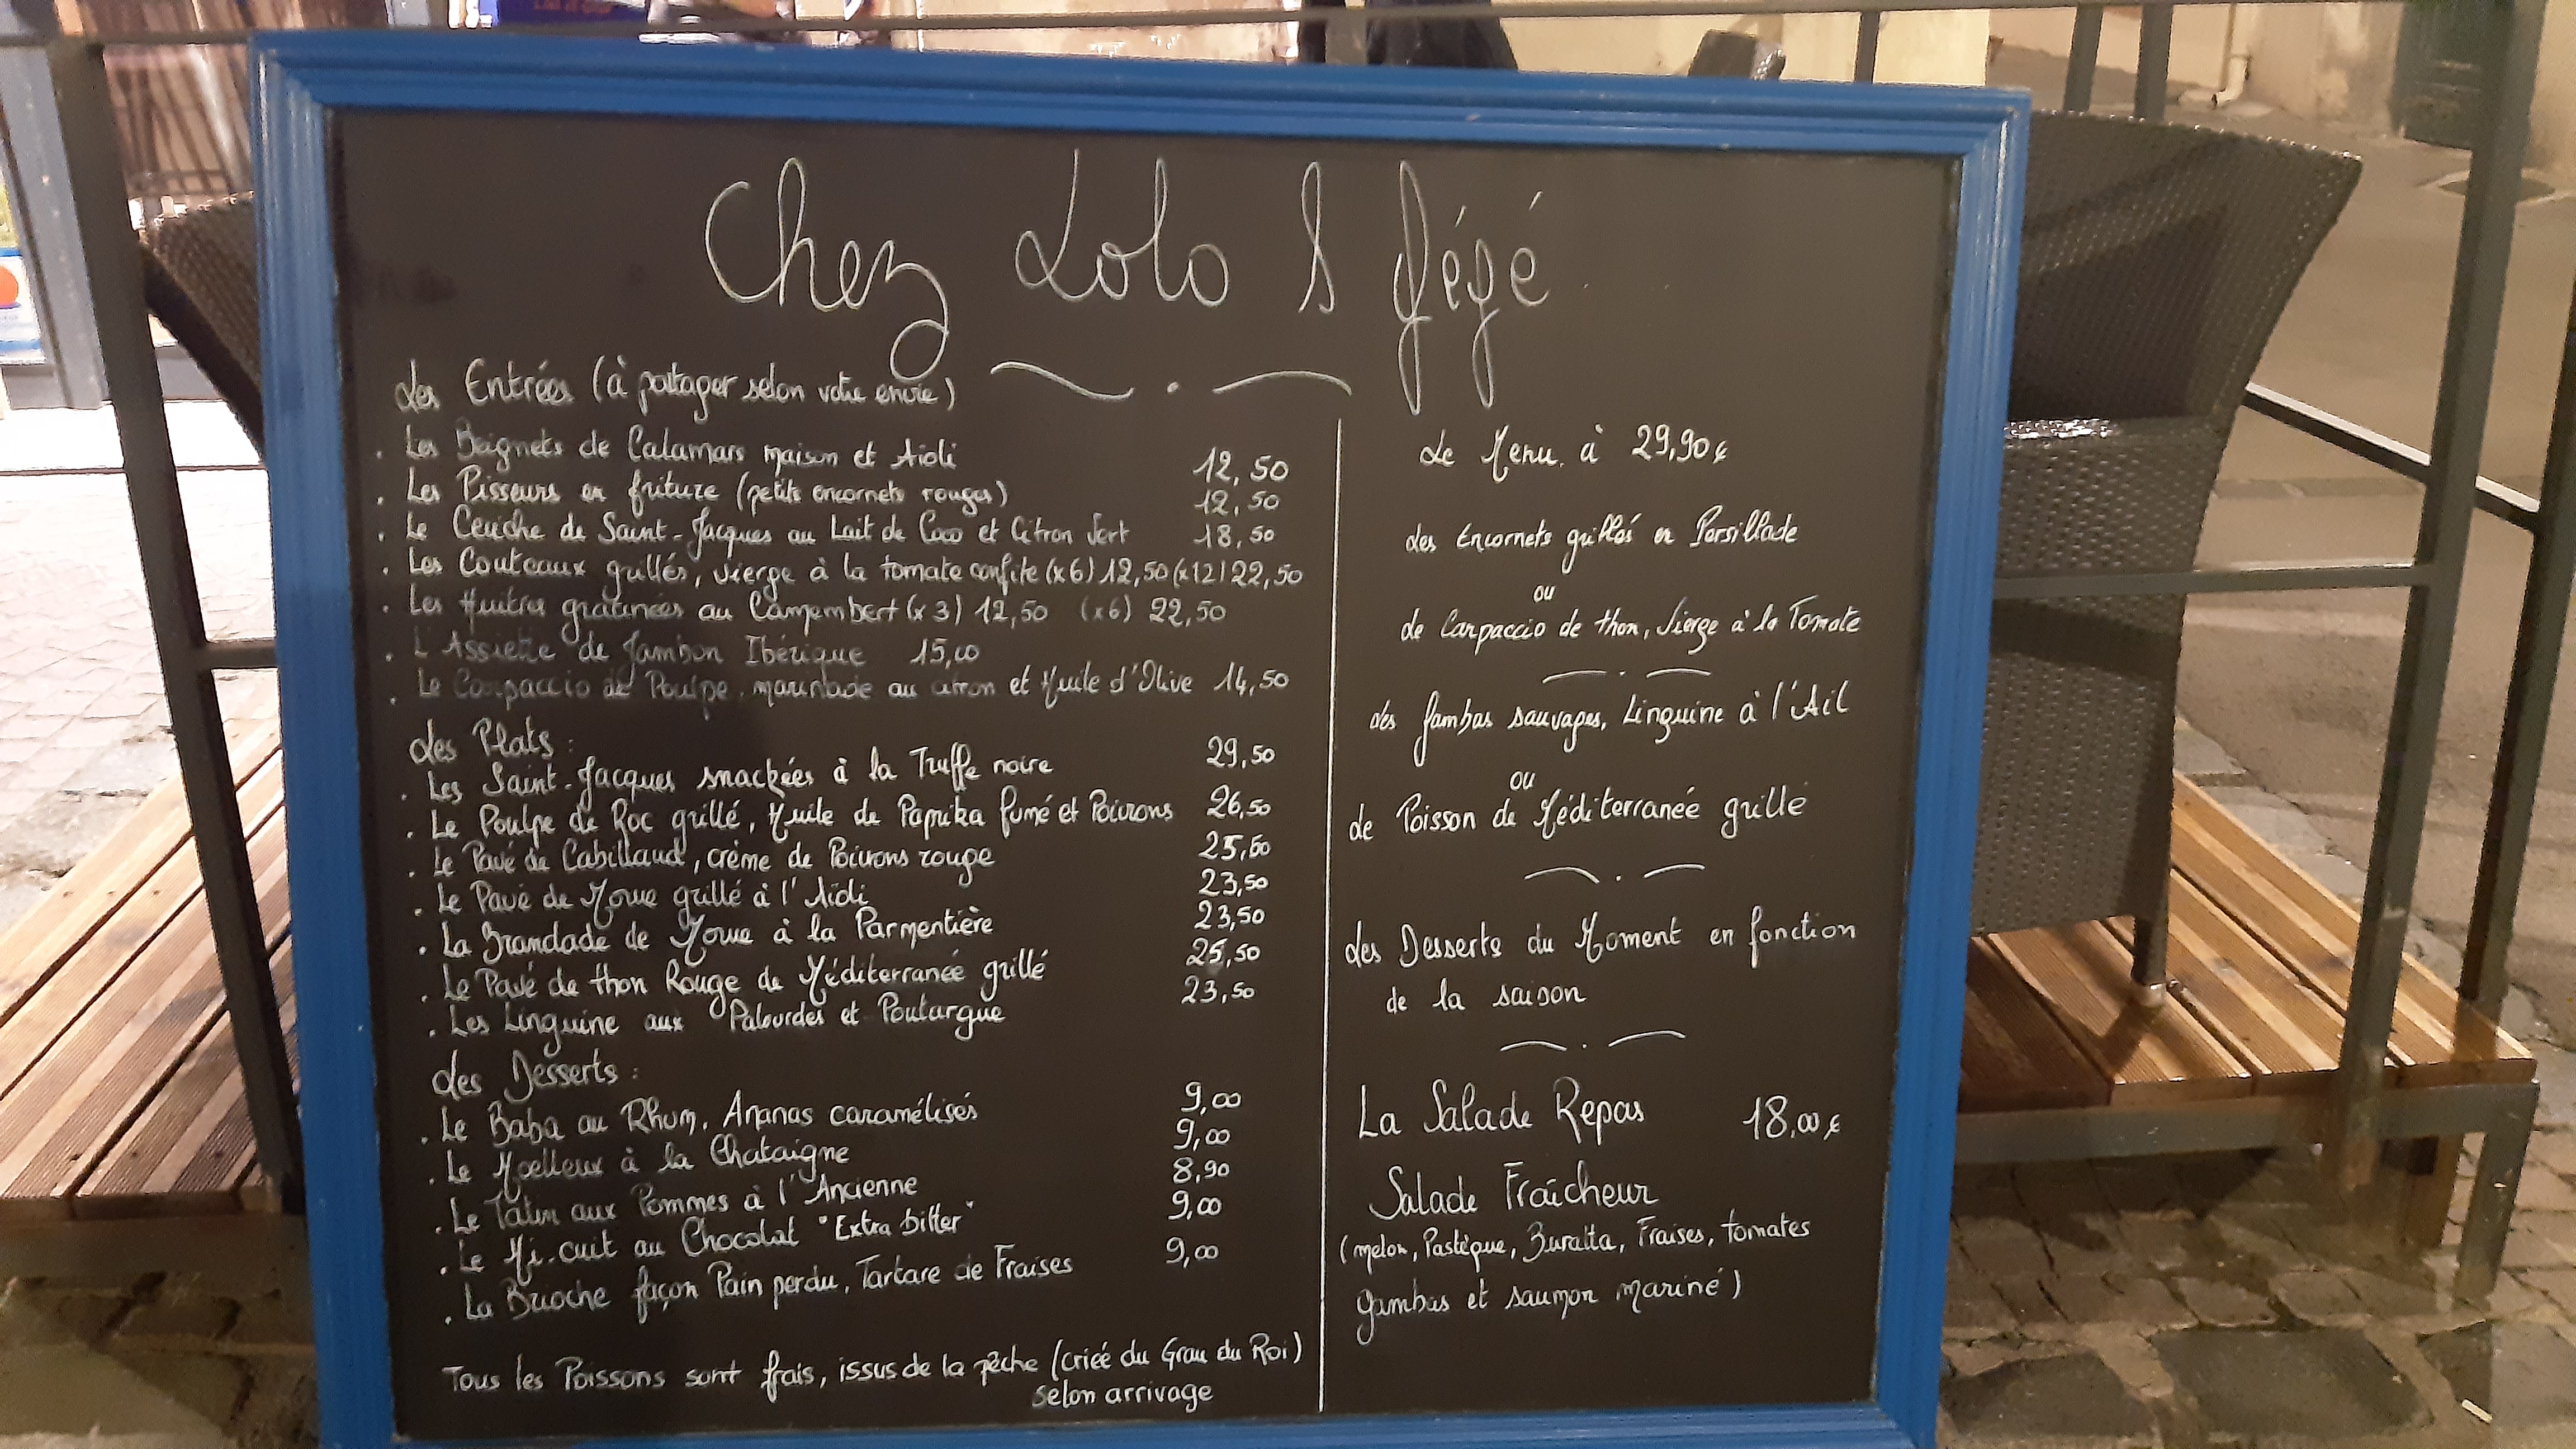 Chez Lolo & Gégé
Les Entrées (à partager selon votre envie)
. Les Beignets de Calamars maison et Aïoli 12,50
. Les Pisseurs en friture (petits encornets rouges) 12,50
. Le Ceviche de Saint-Jacques au Lait de Coco et Citron Vert 18,50
. Les Couteaux grillés, vierge à la tomate confite (x6) 12,50 (x12) 22,50
. Les Huitres gratinées au Camembert (x3) 12,50 (x6) 22,50
. L'Assiette de Jambon Ibérique 15,00
. Le Carpaccio de Poulpe, marinade au citron et Huile d'Olive 14,50
Les Plats :
. Les Saint-Jacques snackées à la Truffe noire 29,50
. Le Poulpe de Roc grillé, Huile de Paprika fumé et Poivrons 26,50
. Le Pavé de Cabillaud, crème de Poivrons rouge 25,50
. Le Pavé de Morue grillé à l'Aïoli 23,50
. La Brandade de Morue à la Parmentière 23,50
. Le Pavé de thon Rouge de Méditerranée grillé 25,50
. Les Linguine aux Palourdes et Poutargue 23,50
Les Desserts :
. Le Baba au Rhum, Ananas caramélisés 9,00
. Le Moelleux à la Chataigne 9,00
. Le Tatin aux Pommes à l'Ancienne 8,90
. Le Mi-cuit au Chocolat "Extra bitter" 9,00
. La Brioche façon Pain perdu, Tartare de Fraises 9,00
Tous les Poissons sont frais, issus de la pêche (criée du Grau du Roi)
selon arrivage
Le Menu à 29,90€
Les Encornets grillés en Persillade
ou
Le Carpaccio de thon, Vierge à la Tomate
Les Gambas sauvages, Linguine à l'Ail
ou
Le Poisson de Méditerranée grillé
Les Desserts du Moment en fonction
de la saison
La Salade Repas 18,00€
Salade Fraîcheur
(melon, Pastèque, Buratta, Fraises, tomates
gambas et saumon mariné)